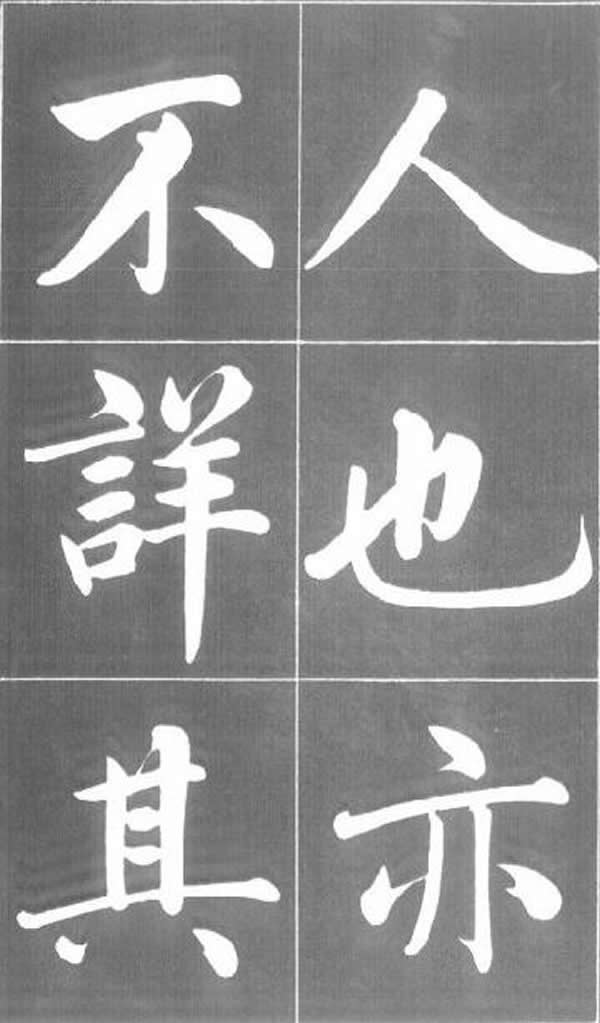 人也亦
不詳其